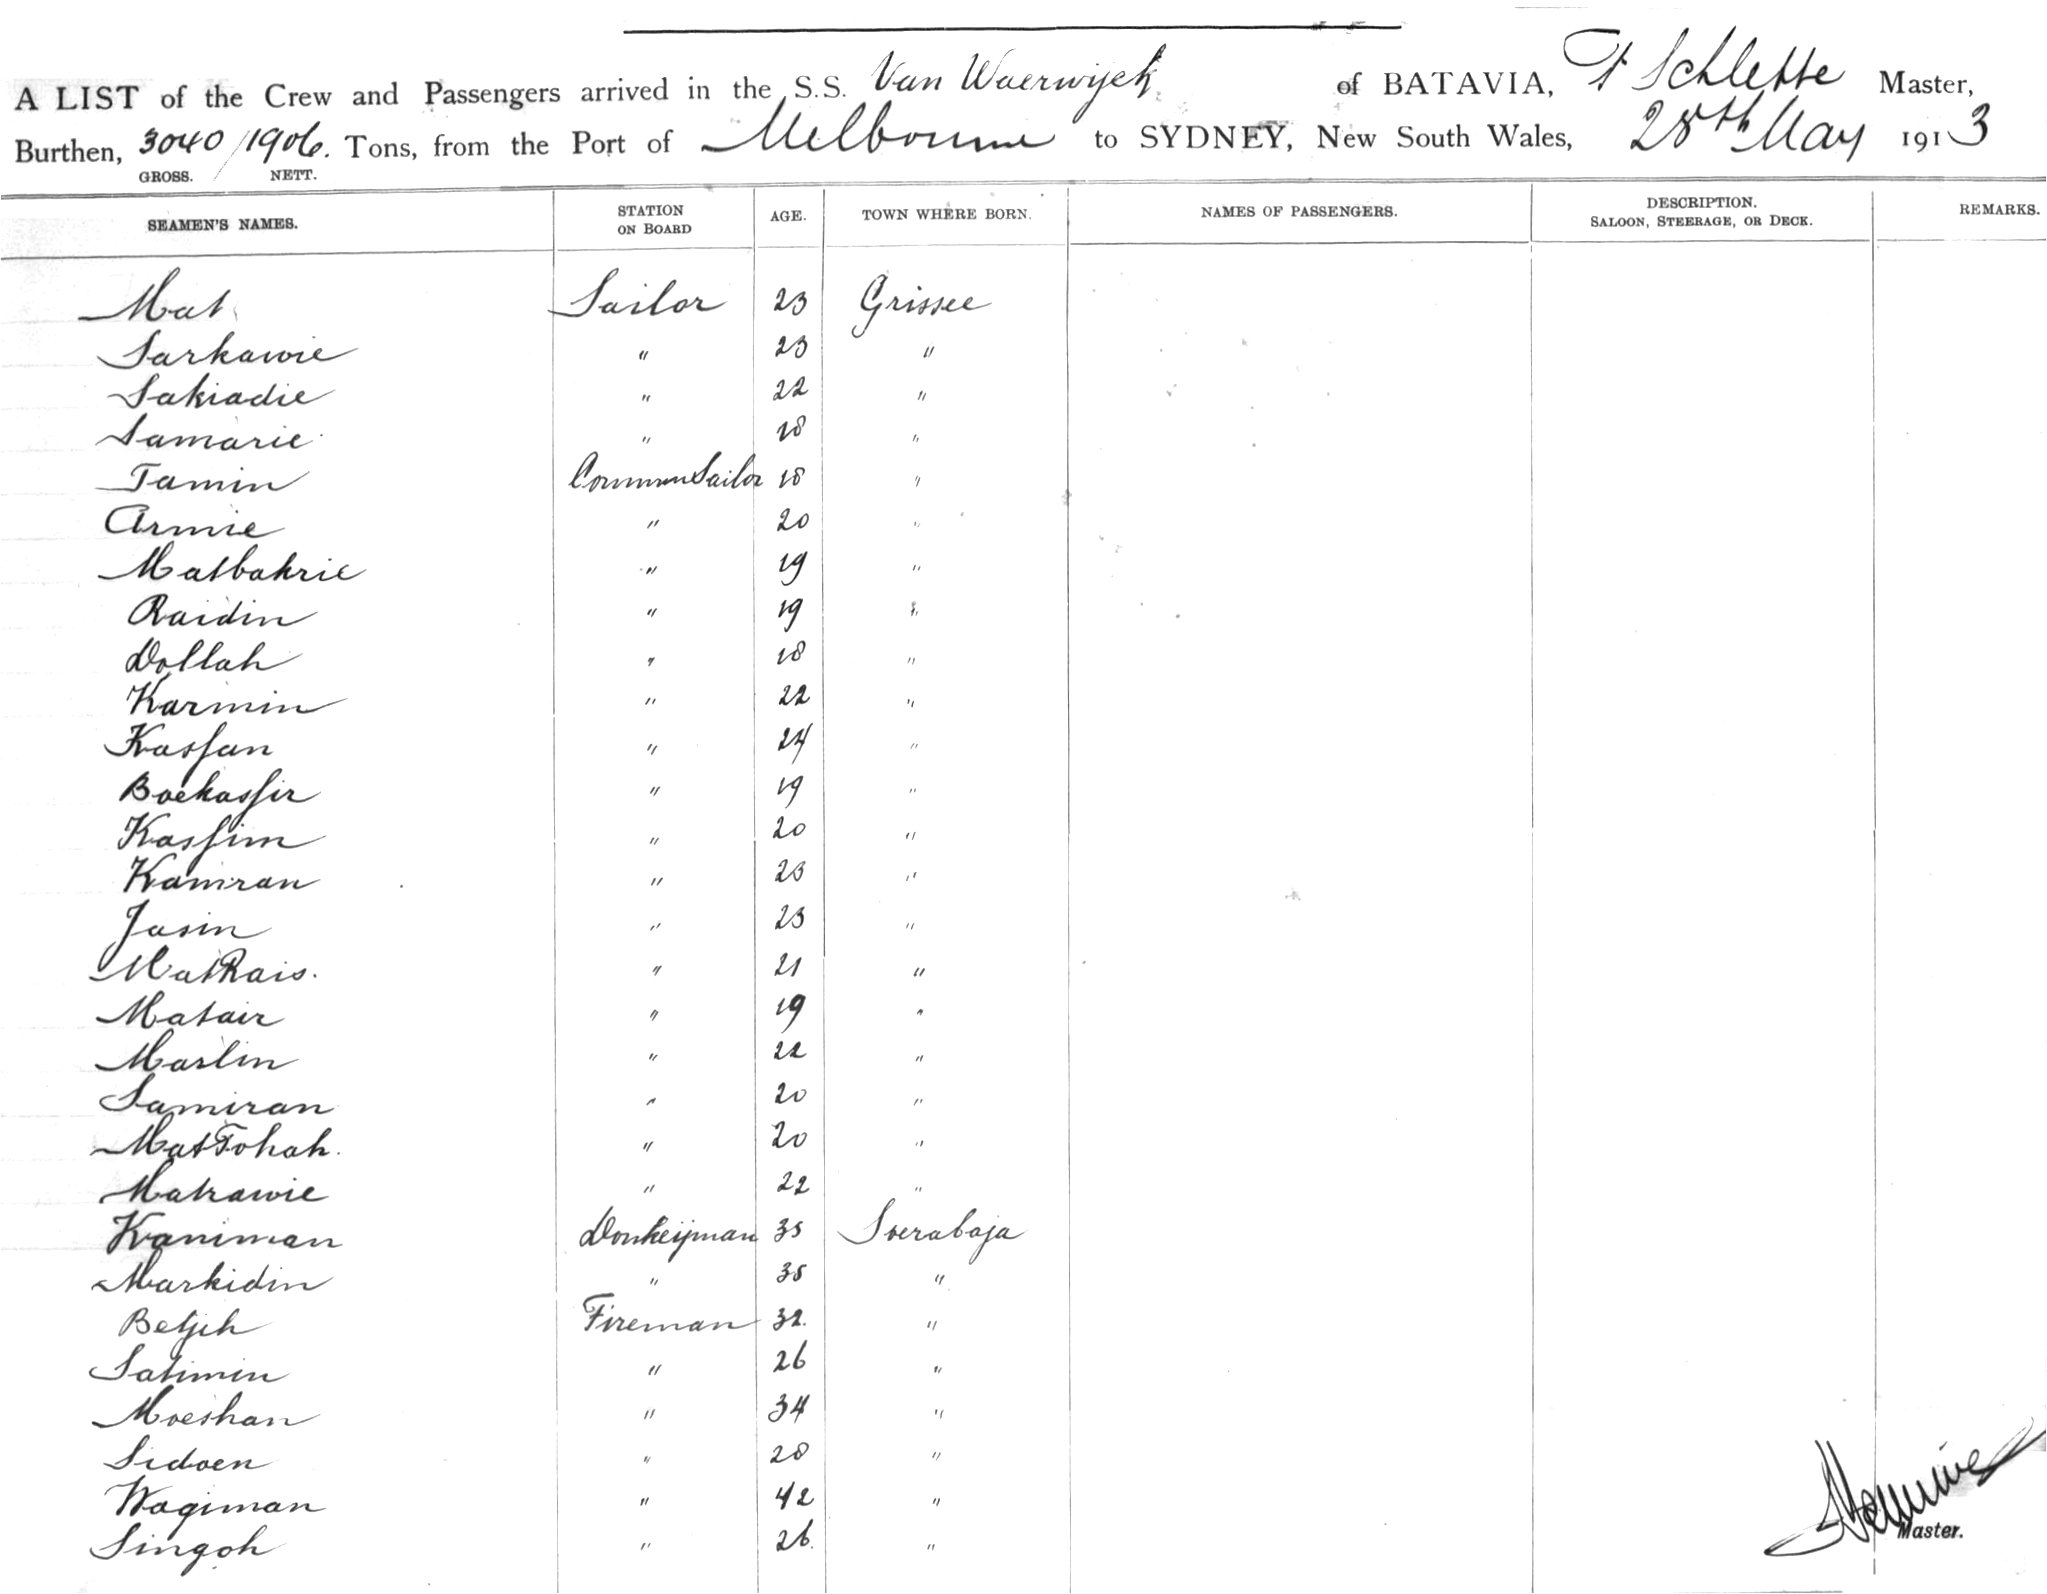 A LIST of the Crew and Passengers arrived in the S.S. Van Waerwijck of BATAVIA, Schlette Master,
Burthen, 3040/1906. Tons, from the Port of Melbourne to SYDNEY, New South Wales, 28th May 1913
GROSS. NETT.
SEAMEN'S NAMES. STATION ON BOARD AGE. TOWN WHERE BORN. NAMES OF PASSENGERS. DESCRIPTION. SALOON, STEERAGE, OR DECK. REMARKS.
Mat Sailor 23 Grissee
Sarkawie " 23 "
Sakiadie " 22 "
Samarie " 18 "
Tamin Common Sailor 18 "
Armie " 20 "
Matbakrie " 19 "
Raidin " 19 "
Dollah " 18 "
Karmin " 22 "
Kassan " 24 "
Boekassir " 19 "
Kassim " 20 "
Kamran " 23 "
Jasin " 23 "
MatRais. " 21 "
Matair " 19 "
Maslin " 22 "
Samiran " 20 "
MatTohah. " 20 "
Matrawie " 22 "
Kaniman Donkeijman 35 Soerabaja
Markidin " 35 "
Betjeh Fireman 32. "
Satimin " 26 "
Moeshan " 34 "
Sidoen " 28 "
Wagiman " 42 "
Singoh " 26. "
Master.